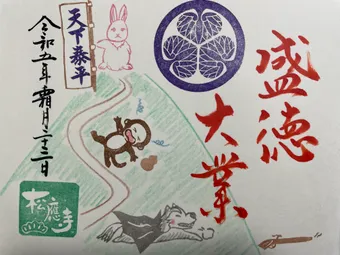 盛徳
大業
天下泰平
令和五年霜月二十二日
松應寺